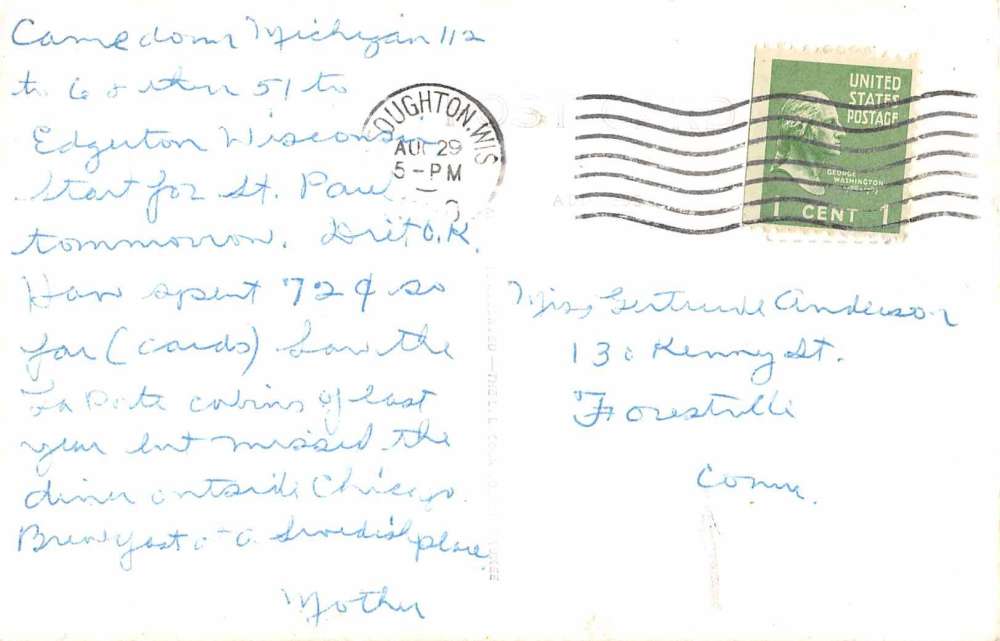 Came down Michigan 112
to 6 & then 51 to
Edgerton Wisconsin
start for St. Paul
tommorrow. Diet O.K.
Have spent 72¢ so
far (cards) Saw the
La Porte cabins of last
year but missed the
diner outside Chicago.
Breakfast at a Swedish place.
Mother
OUGHTON, WIS
AUG 29
5-PM
UNITED
STATES
POSTAGE
GEORGE
WASHINGTON
1 CENT 1
Miss Gertrude Anderson
130 Kenny St.
Forestville
Conn.